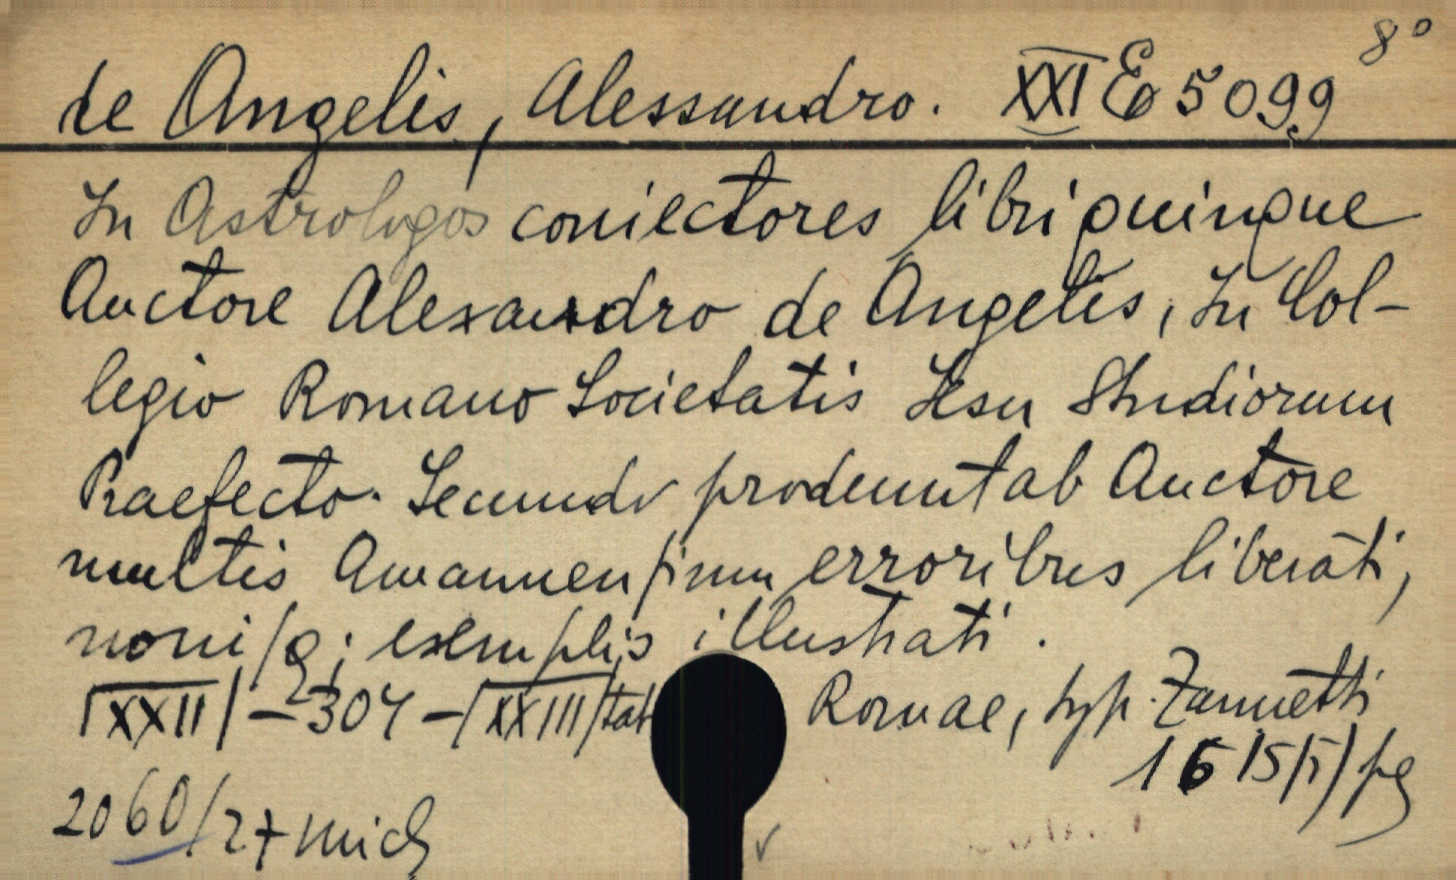 8°
de Angelis, Alessandro. XXI E 5099
In Astrologos coniectores libri quinque
Auctore Alexandro de Angelis, In Col-
legio Romano Societatis Iesu Studiorum
Praefecto. Secundo prodeunt ab Auctore
multis Amanuensium erroribus liberati,
exemplis illustrati.
[XXII] - 304 - [XXIII] Romae, typ. Zannetti
1615
2060/27 mich